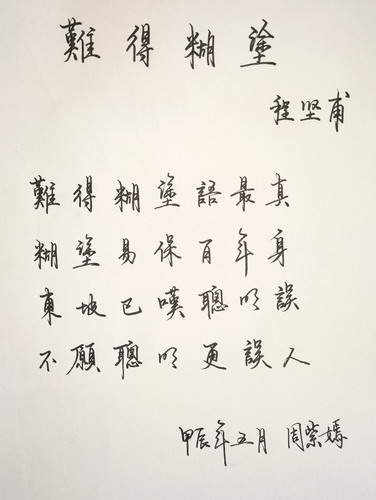 難得糊塗
程坚甫
難得糊塗語最真
糊塗易保百年身
東坡已嘆聰明誤
不願聰明更誤人
甲辰年五月 周紫嫣